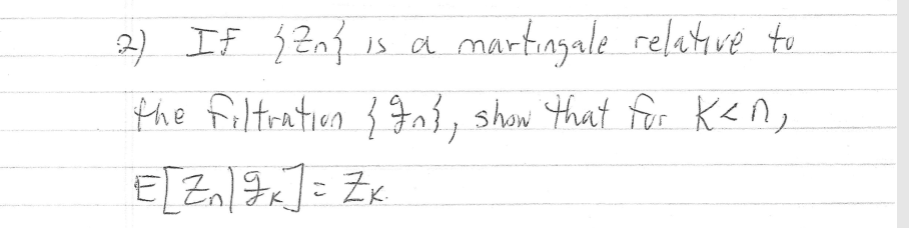 2) If {Zn} is a martingale relative to
the filtration {𝒢n}, show that for K<n,
E[Zn|𝒢K] = ZK.